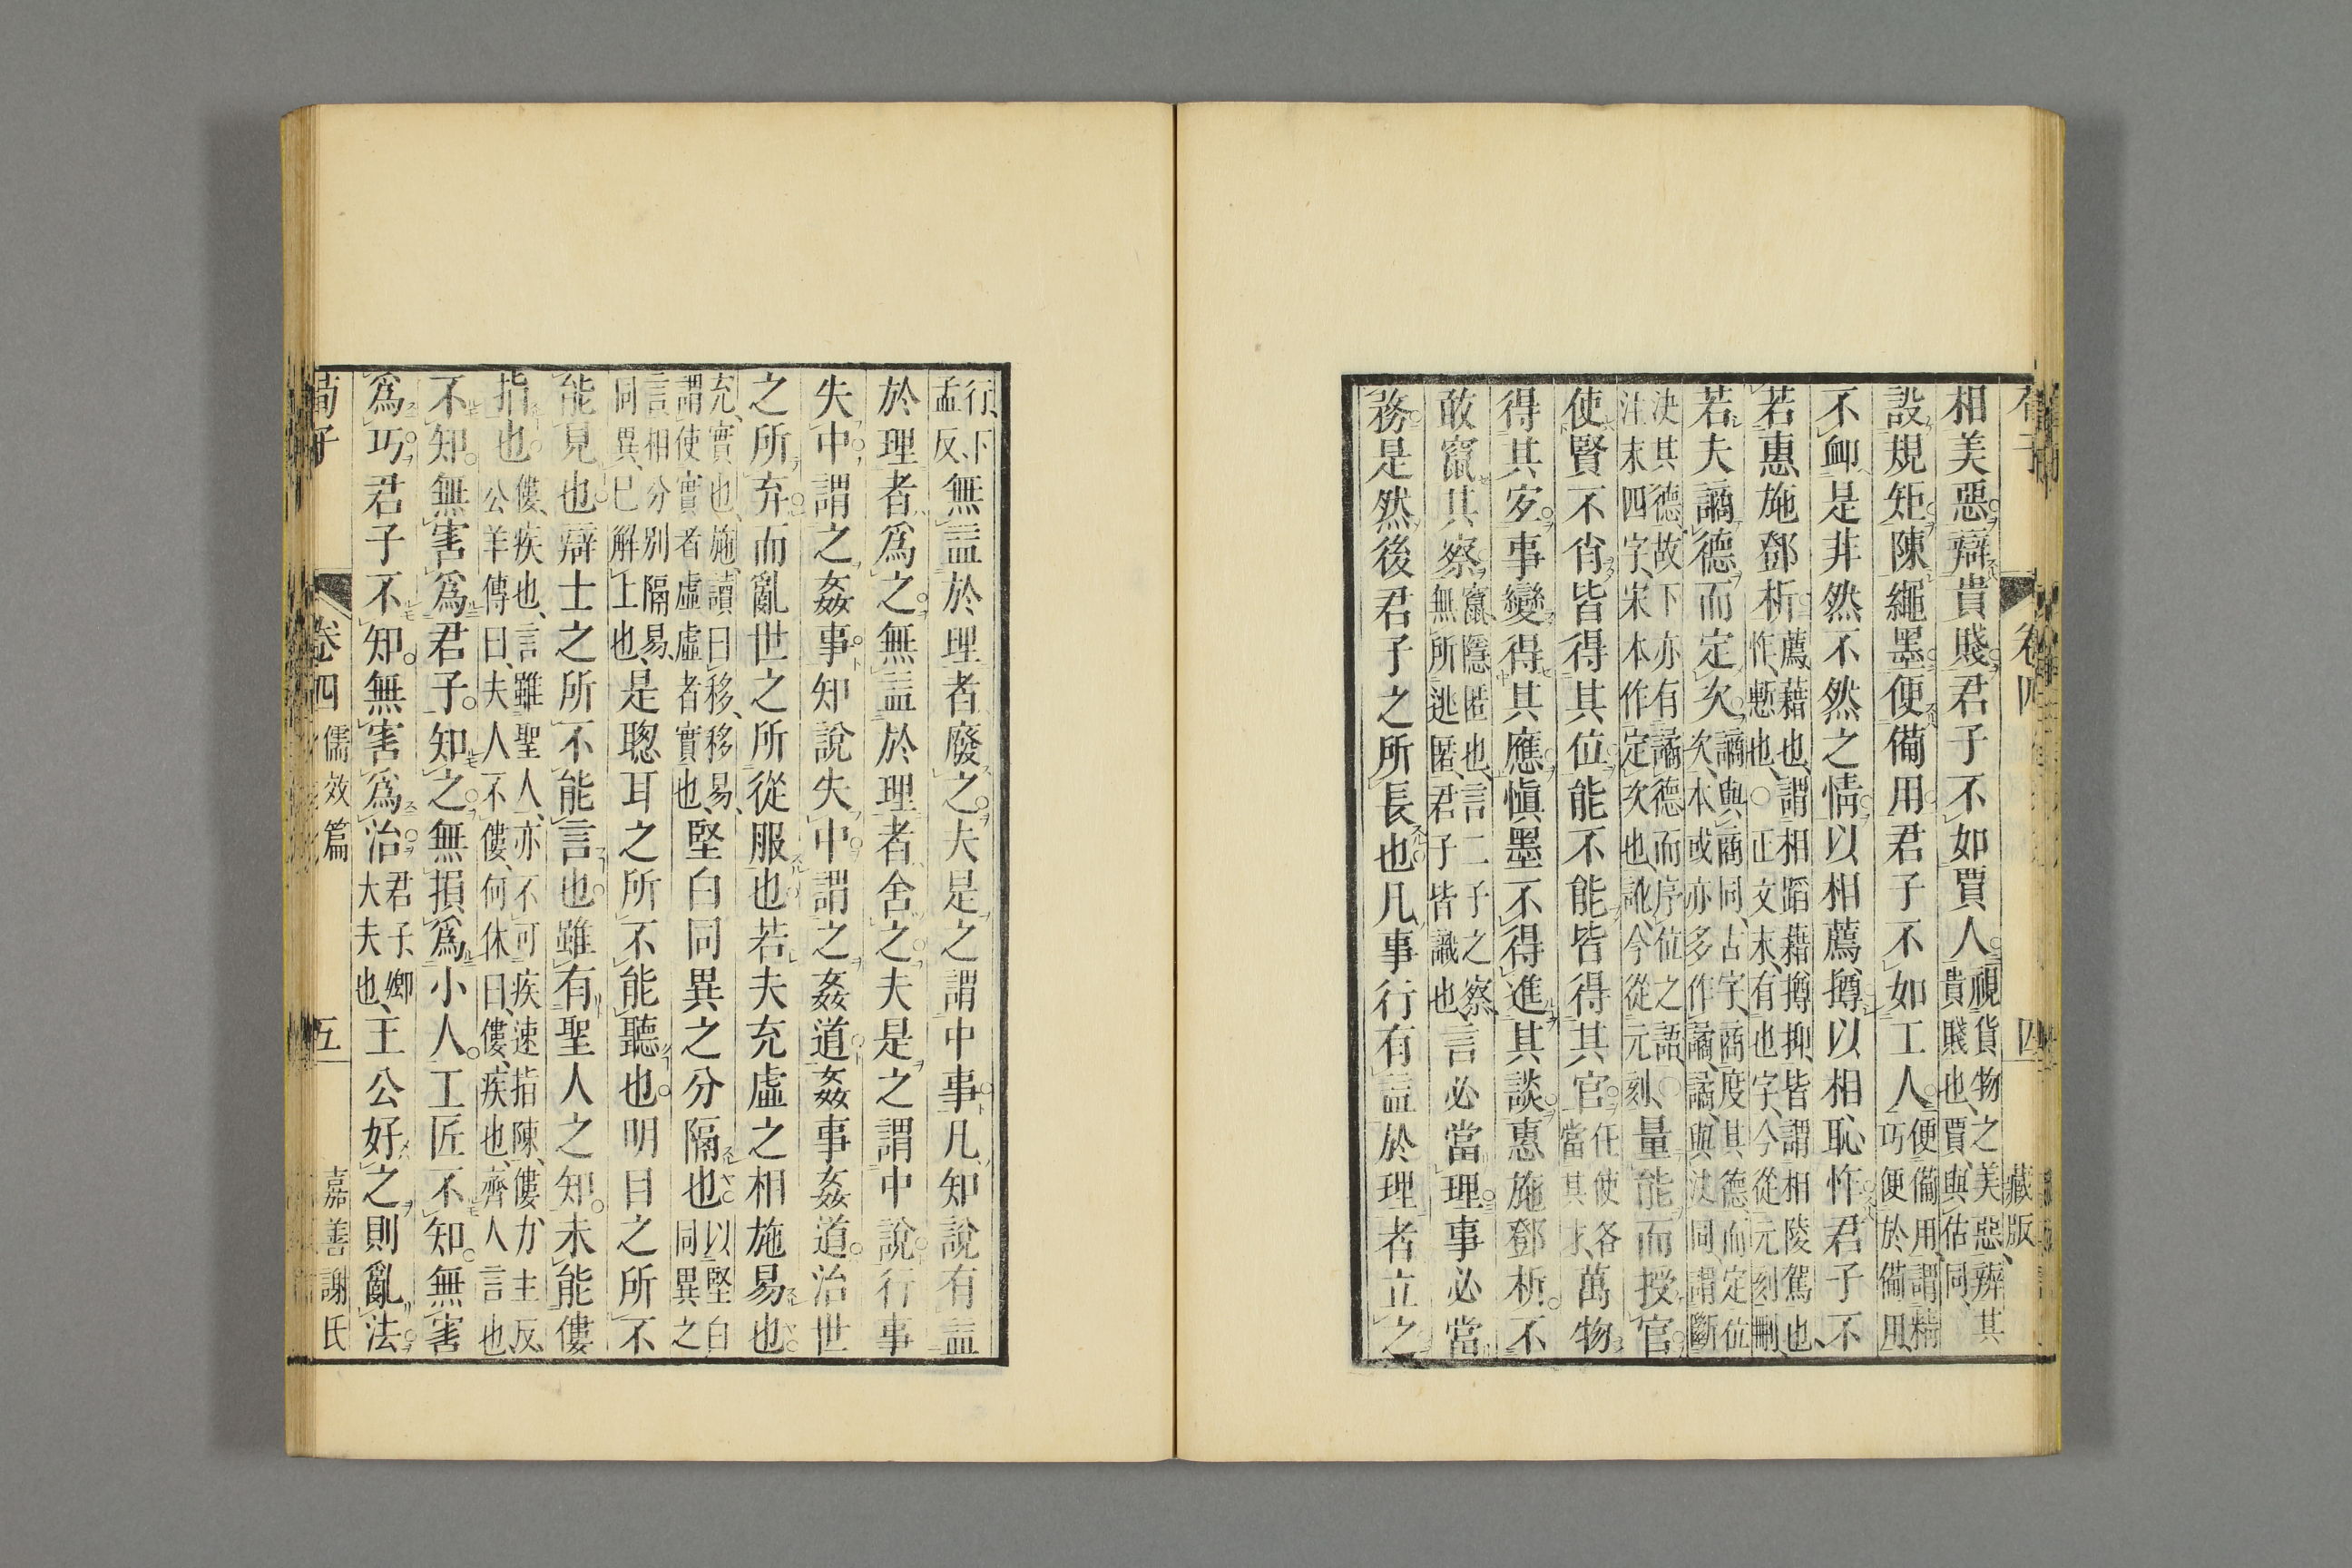 荀子 卷四 四 藏版
相美惡辯貴賤君子不如賈人視貨物之美惡辨其貴賤也賈與估同
設規矩陳繩墨便備用君子不如工人便備用謂精巧便於備用
不卹是非然不然之情以相薦撙以相恥怍君子不
若惠施鄧析薦藉也謂相蹈藉撙抑皆謂相陵駕也怍慙也○正文末有也字今從元刻刪
若夫譎德而定次譎與商同古字商度其德而定位次本或亦多作譎譎與决同謂斷
决其德故下亦有譎德而序位之語○注末四字宋本作定次也訛今從元刻量能而授官
使賢不肖皆得其位能不能皆得其官任使各當其才萬物
得其宜事變得其應愼墨不得進其談惠施鄧析不
敢竄其察竄隱匿也言二子之察無所逃匿君子皆識也言必當理事必當
務是然後君子之所長也凡事行有益於理者立之
行下孟反無益於理者廢之夫是之謂中事凡知說有益
於理者爲之無益於理者舍之夫是之謂中說行事
失中謂之姦事知說失中謂之姦道姦事姦道治世
之所弃而亂世之所從服也若夫充虛之相施易也
充實也施讀曰移移易謂使實者虛虛者實也堅白同異之分隔也以堅白同異之
言相分別隔易同異已解上也是聰耳之所不能聽也明目之所不
能見也辯士之所不能言也雖有聖人之知未能僂
指也僂疾也言雖聖人亦不可疾速指陳僂力主反公羊傳曰夫人不僂何休曰僂疾也齊人言也
不知無害爲君子知之無損爲小人工匠不知無害
爲巧君子不知無害爲治君子卿大夫也王公好之則亂法
荀子 卷四 儒效篇 五 嘉善謝氏